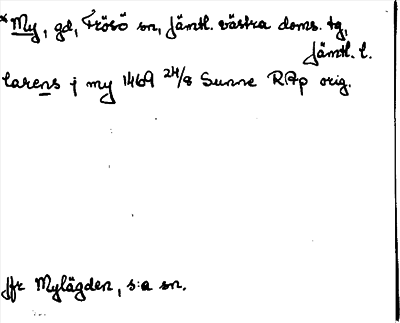 *My, gd, Frösö sn, Jämtl. västra doms. tg,
Jämtl. l.
larens j my 1469 24/8 Sunne RAp orig.
Jfr Mylägden, s:a sn.